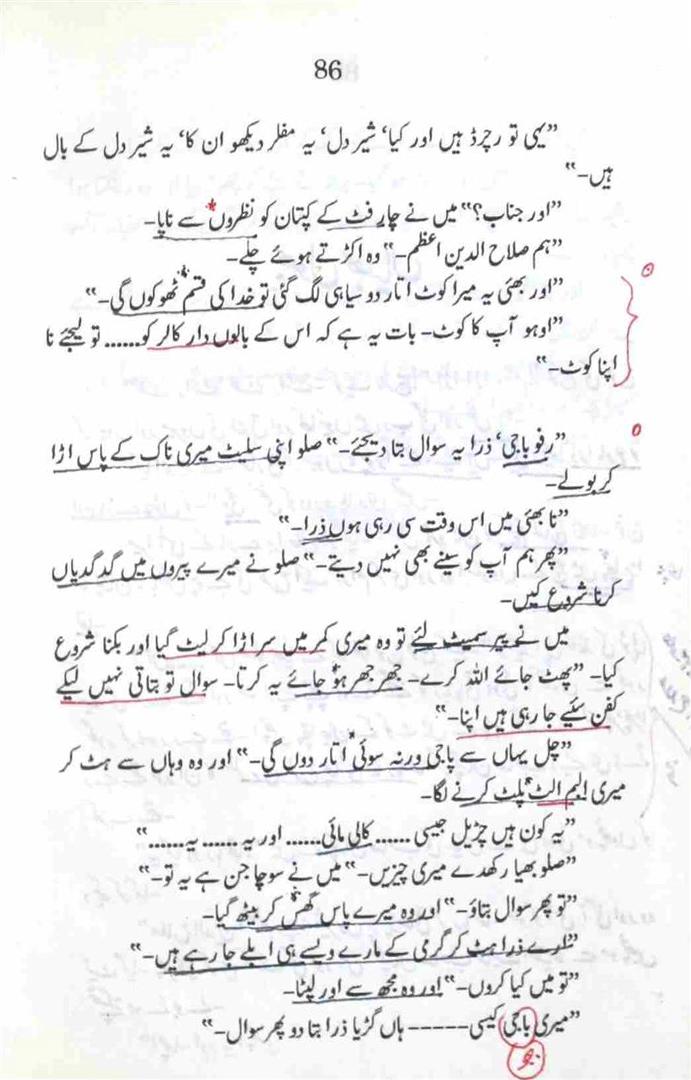 86
”یہی تو رچرڈ ہیں اور کیا‘ شیر دل‘ یہ مفلر دیکھو ان کا‘ یہ شیر دل کے بال
ہیں۔“
”اور جناب؟“ میں نے چار فٹ کے کپتان کو نظروں سے ناپا۔
”ہم صلاح الدین اعظم۔“ وہ اکڑتے ہوئے چلے۔
”اور بھئی یہ میرا کوٹ اتار دو سیاہی لگ گئی تو خدا کی قسم ٹھوکوں گی۔“
”اوہو آپ کا کوٹ۔ بات یہ ہے کہ اس کے بالوں دار کالر کو...... تو لیجئے نا
اپنا کوٹ۔“
”رفو باجی‘ ذرا یہ سوال بتا دیجئے۔“ صلو اپنی سلیٹ میری ناک کے پاس اڑا
کر بولے۔
”نا بھئی میں اس وقت سی رہی ہوں ذرا۔“
”پھر ہم آپ کو سینے بھی نہیں دیتے۔“ صلو نے میرے پیروں میں گدگدیاں
کرنا شروع کیں۔
میں نے پیر سمیٹ لئے تو وہ میری کمر میں سر اڑا کر لیٹ گیا اور بکنا شروع
کیا۔ ”پھٹ جائے اللہ کرے۔ جھر جھر ہو جائے یہ کرتا۔ سوال تو بتاتی نہیں لیکے
کفن سئیے جا رہی ہیں اپنا۔“
”چل یہاں سے پاجی ورنہ سوئی اتار دوں گی۔“ اور وہ وہاں سے ہٹ کر
میری البم الٹ پلٹ کرنے لگا۔
”یہ کون ہیں چڑیل جیسی ...... کالی مائی...... اور یہ ...... یہ......“
”صلو بھیا رکھدے میری چیزیں۔“ میں نے سوچا جن ہے یہ تو۔“
”تو پھر سوال بتاؤ۔“ اور وہ میرے پاس گھس کر بیٹھ گیا۔
”ارے ذرا ہٹ کر گرمی کے مارے ویسے ہی ابلے جا رہے ہیں۔“
”تو میں کیا کروں۔“ اور وہ مجھ سے اور لپٹا۔
”میری باجی کیسی ----- ہاں گڑیا ذرا بتا دو پھر سوال۔“